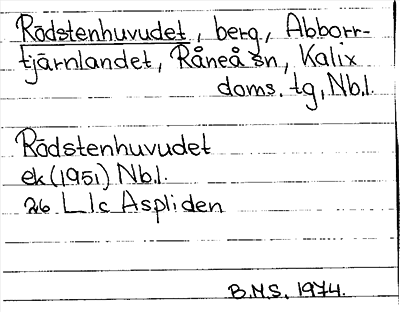 Rödstenhuvudet, berg, Abborr-
tjärnlandet, Råneå sn, Kalix
doms. tg, Nb.l.
Rödstenhuvudet
ek (1951) Nb.l.
26 L l c Aspliden
B.M.S. 1974.